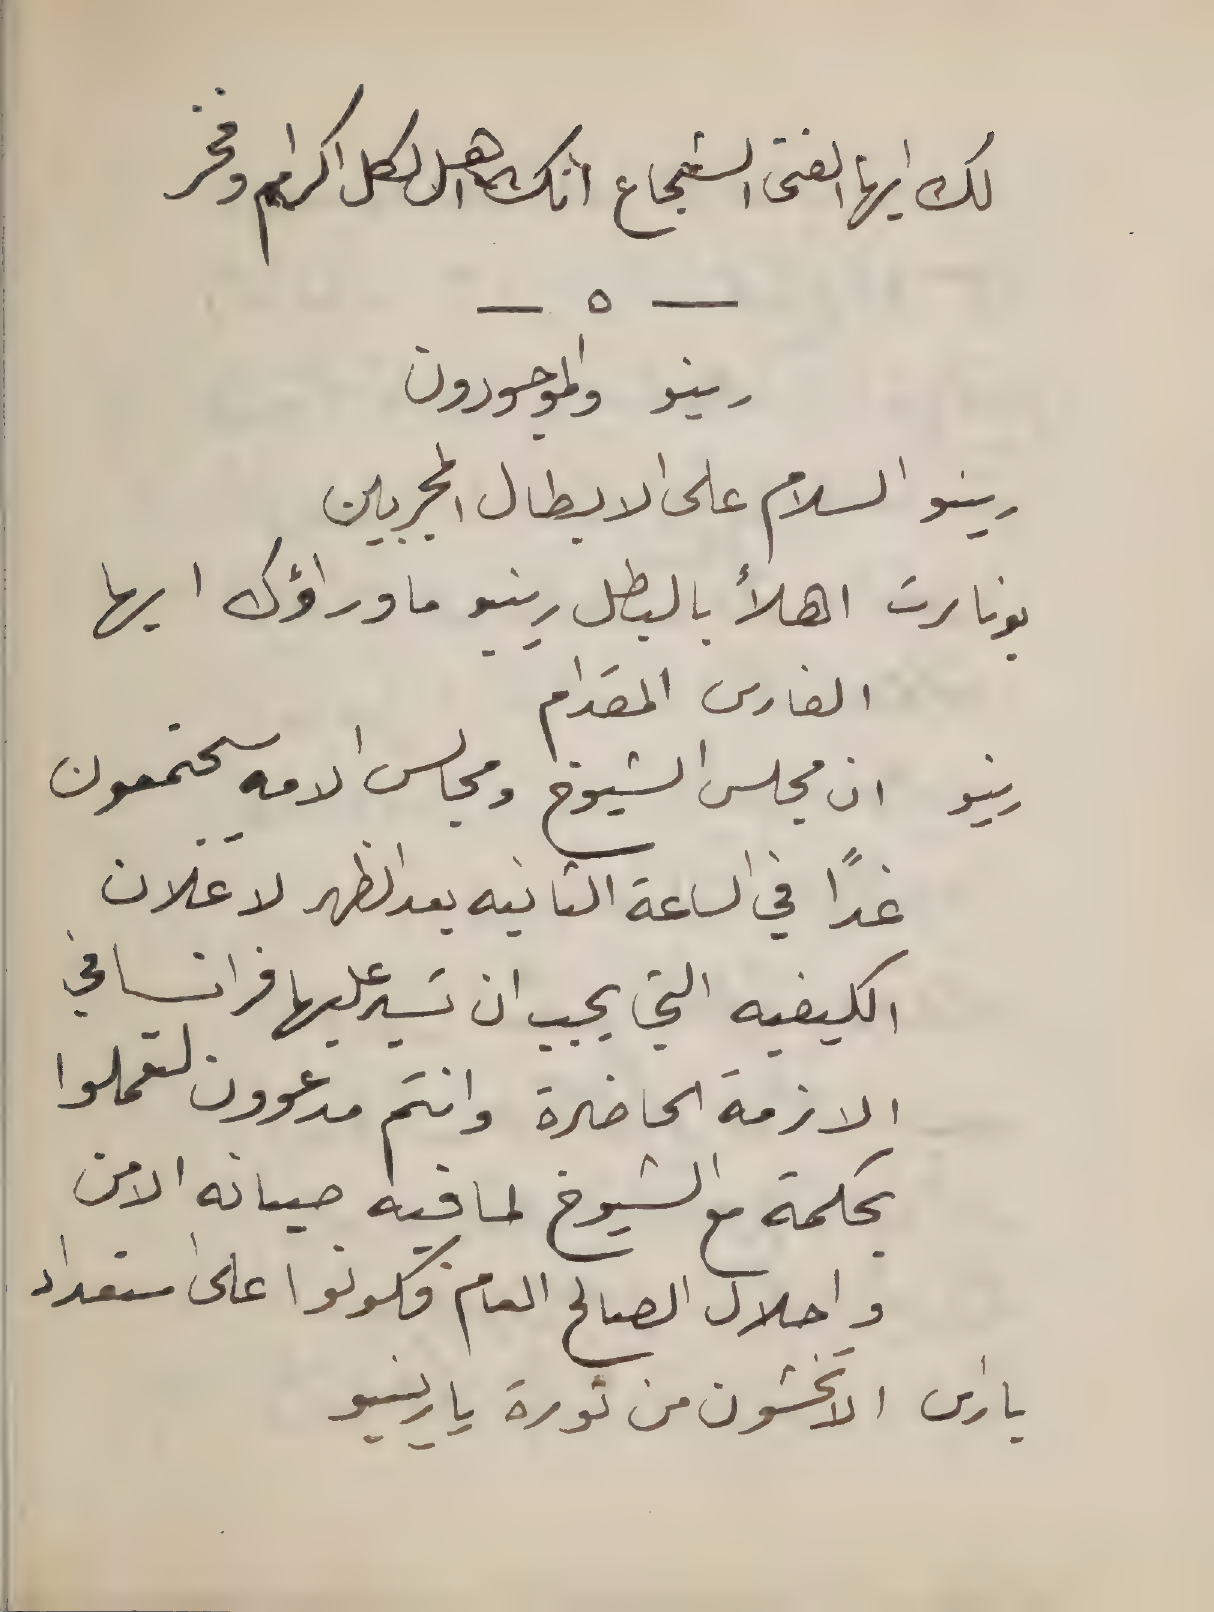 لك ايها الفتى الشجاع انك اهل لكل اكرام وفخر
— ٥ —
رينو والموجودون
رينو السلام على الابطال المجربين
بونابرت اهلاً بالبطل رينو ما وراؤك ايها
الفارس المقدام
رينو ان مجلس الشيوخ ومجالس الامه سيجتمعون
غداً في الساعة الثانيه بعد الظهر لاعلان
الكيفيه التي يجب ان تسير عليها فرانسا في
الازمة الحاضرة وانتم مدعوون لتعملوا
بحكمة مع الشيوخ لما فيه صيانه الامن
واحلال الصالح العام فكونوا على استعداد
باراس الا تخشون من ثورة يا رينو